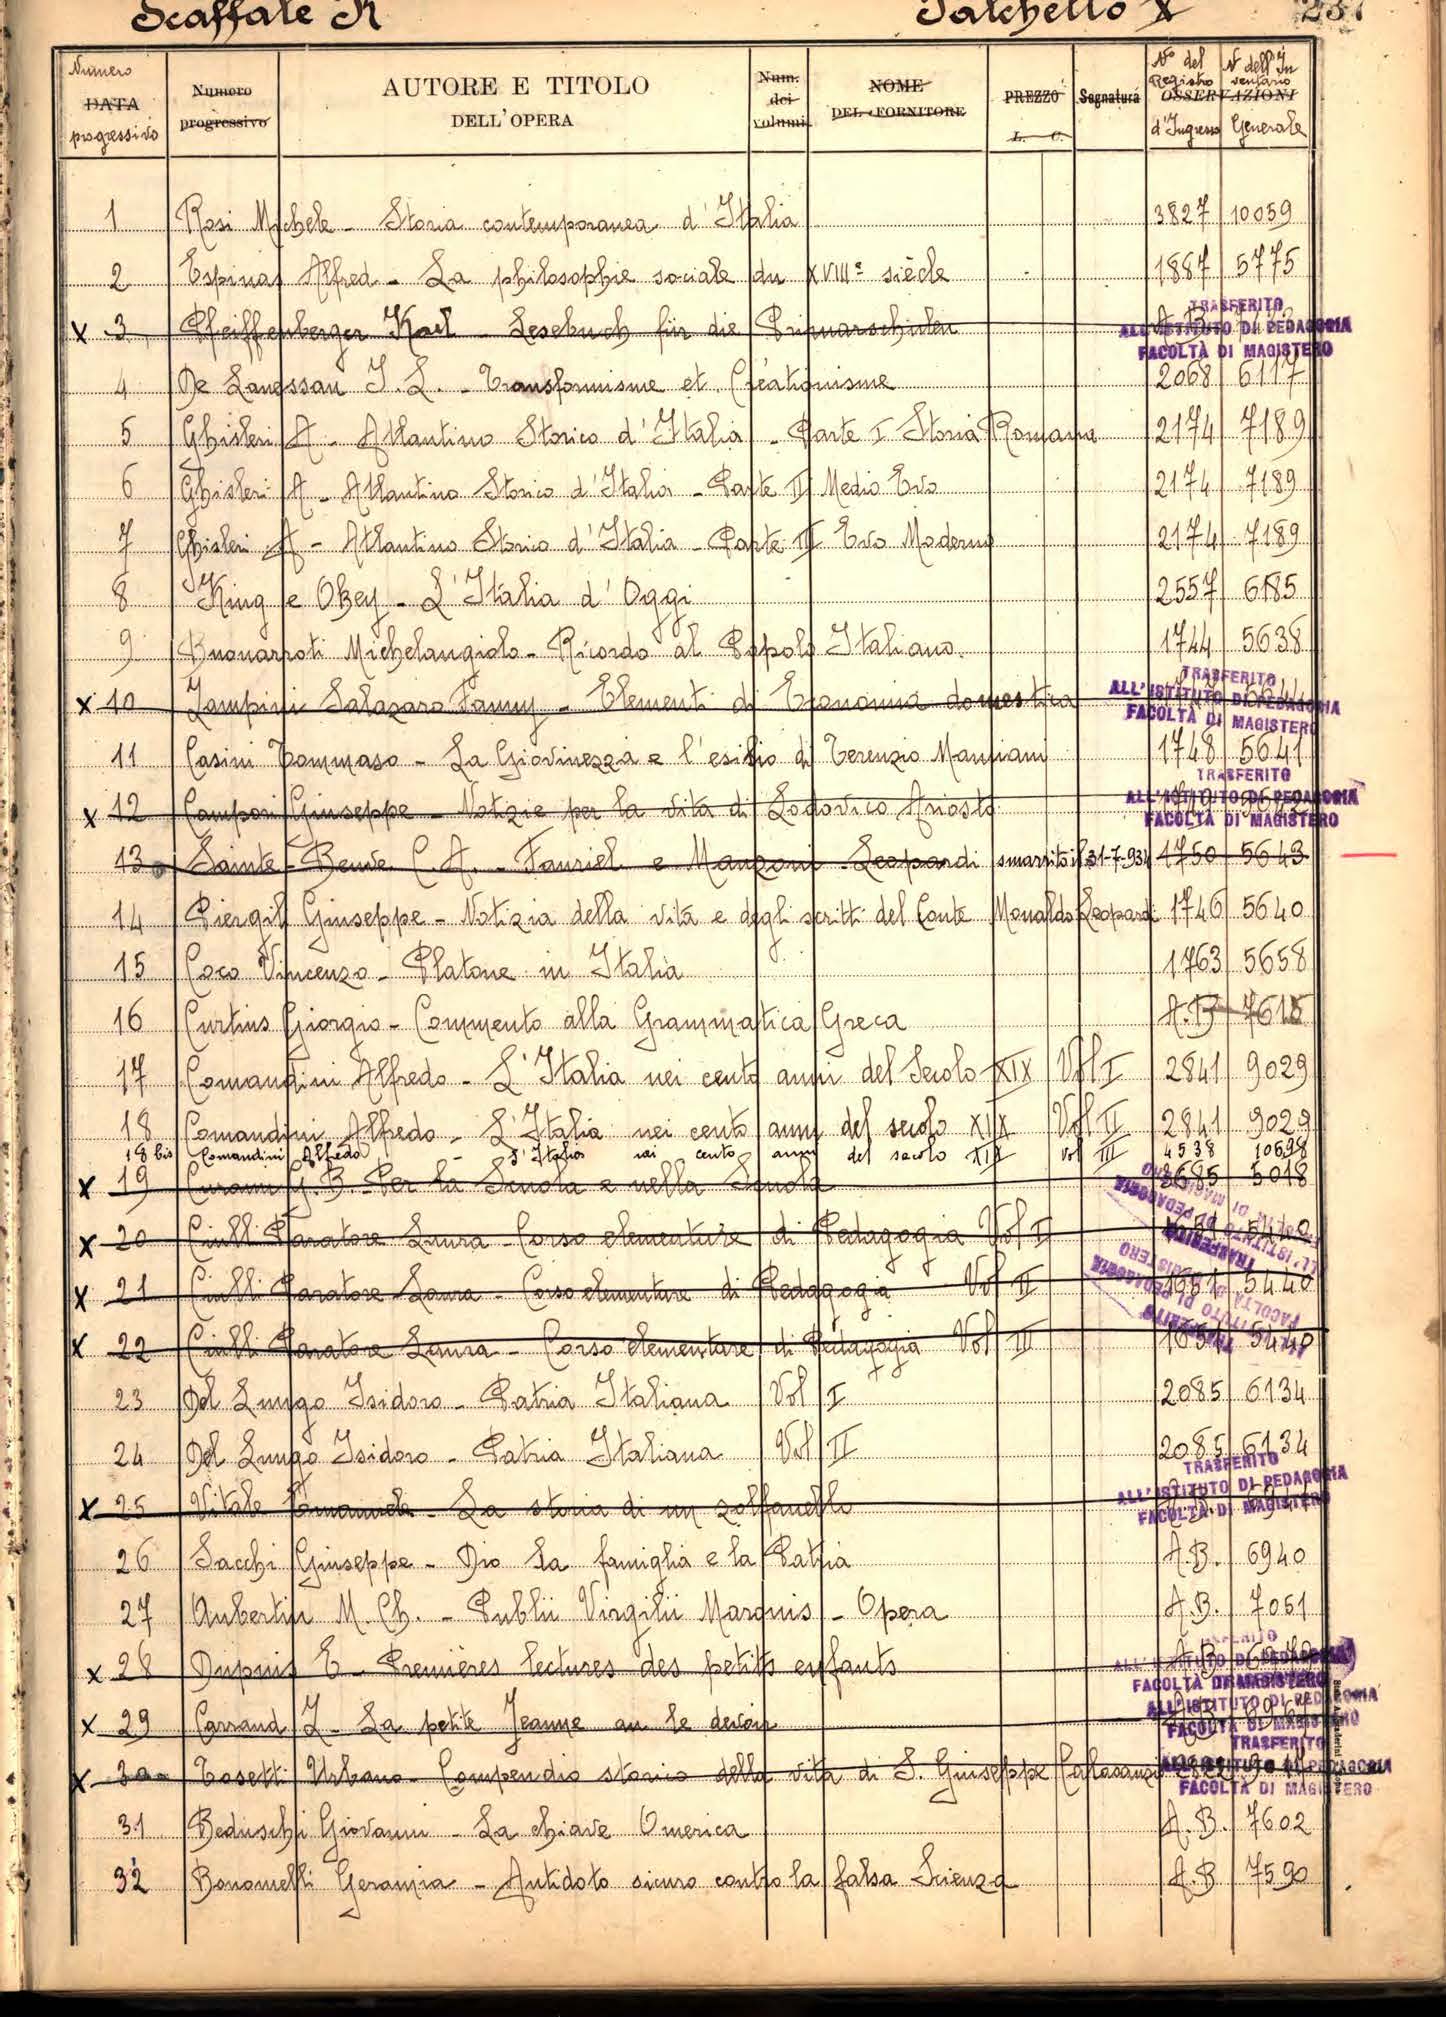 Scaffale R Palchetto X 237
Numero DATA progressivo
Numero progressivo
AUTORE E TITOLO DELL'OPERA
Num. dei volumi
NOME DEL FORNITORE
PREZZO L. C.
Segnatura
N° del Registro d'Ingresso
OSSERVAZIONI
N dell'Inventario Generale
1 Rosi Michele - Storia contemporanea d'Italia 3827 10059
2 Espinas Alfred - La philosophie sociale du XVIIIe siècle 1887 5775
x 3 Pfeiffenberger Karl - Lesebuch für die Primarschulen
TRASFERITO ALL'ISTITUTO DI PEDAGOGIA FACOLTÀ DI MAGISTERO
4 De Lanessan J. L. - Transformisme et Créationisme 2068 6117
5 Ghisleri A - Atlantino Storico d'Italia - Parte I Storia Romana 2174 7189
6 Ghisleri A - Atlantino Storico d'Italia - Parte II Medio Evo 2174 7189
7 Ghisleri A - Atlantino Storico d'Italia - Parte III Evo Moderno 2174 7189
8 King e Okey - L'Italia d'Oggi 2557 6185
9 Buonarroti Michelangiolo - Ricordo al Popolo Italiano. 1744 5638
x 10 Zampini Salazaro Fanny - Elementi di Economia domestica
TRASFERITO ALL'ISTITUTO DI PEDAGOGIA FACOLTÀ DI MAGISTERO
11 Casini Tommaso - La Giovinezza e l'esilio di Terenzio Mamiani 1748 5641
x 12 Campori Giuseppe - Notizie per la vita di Lodovico Ariosto
TRASFERITO ALL'ISTITUTO DI PEDAGOGIA FACOLTÀ DI MAGISTERO
13 Sainte-Beuve C. A. - Fauriel e Manzoni - Leopardi smarrito il 31-7-934 1750 5643
14 Piergili Giuseppe - Notizia della vita e degli scritti del Conte Monaldo Leopardi 1746 5640
15 Coco Vincenzo - Platone in Italia 1763 5658
16 Curtius Giorgio - Commento alla Grammatica Greca A.B 7615
17 Comandini Alfredo - L'Italia nei cento anni del Secolo XIX Vol I 2841 9029
18 Comandini Alfredo - L'Italia nei cento anni del secolo XIX Vol II 2841 9029
18 bis Comandini Alfredo - L'Italia nei cento anni del secolo XIX Vol III 4538 10698
x 19 G. B. - Per la Scuola e nella Scuola 3685 5018
x 20 Ciulli Paratore Laura Corso elementare di Pedagogia Vol I 5440
TRASFERITO ALL'ISTITUTO DI PEDAGOGIA FACOLTÀ DI MAGISTERO
x 21 Ciulli Paratore Laura - Corso elementare di Pedagogia Vol II 1681 5440
TRASFERITO ALL'ISTITUTO DI PEDAGOGIA FACOLTÀ DI MAGISTERO
x 22 Ciulli Paratore Laura - Corso elementare di Pedagogia Vol III 5440
23 Del Lungo Isidoro - Patria Italiana Vol I 2085 6134
24 Del Lungo Isidoro - Patria Italiana Vol II 2085 6134
x 25 Vitale Emanuele - La storia di un zolfanello
TRASFERITO ALL'ISTITUTO DI PEDAGOGIA FACOLTÀ DI MAGISTERO
26 Sacchi Giuseppe - Dio la famiglia e la Patria A.B. 6940
27 Aubertin M. Ch. - Publii Virgilii Maronis - Opera A.B. 7051
x 28 Dupuis E - Premières lectures des petits enfants A.B
TRASFERITO ALL'ISTITUTO DI PEDAGOGIA FACOLTÀ DI MAGISTERO
x 29 Carraud Z - La petite Jeanne ou le devoir
TRASFERITO ALL'ISTITUTO DI PEDAGOGIA FACOLTÀ DI MAGISTERO
x 30 Tosetti Urbano - Compendio storico della vita di S. Giuseppe Calasanzio
TRASFERITO ALL'ISTITUTO DI PEDAGOGIA FACOLTÀ DI MAGISTERO
31 Beduschi Giovanni - La chiave Omerica A.B. 7602
32 Bonomelli Geremia - Antidoto sicuro contro la falsa Scienza A.B 7590